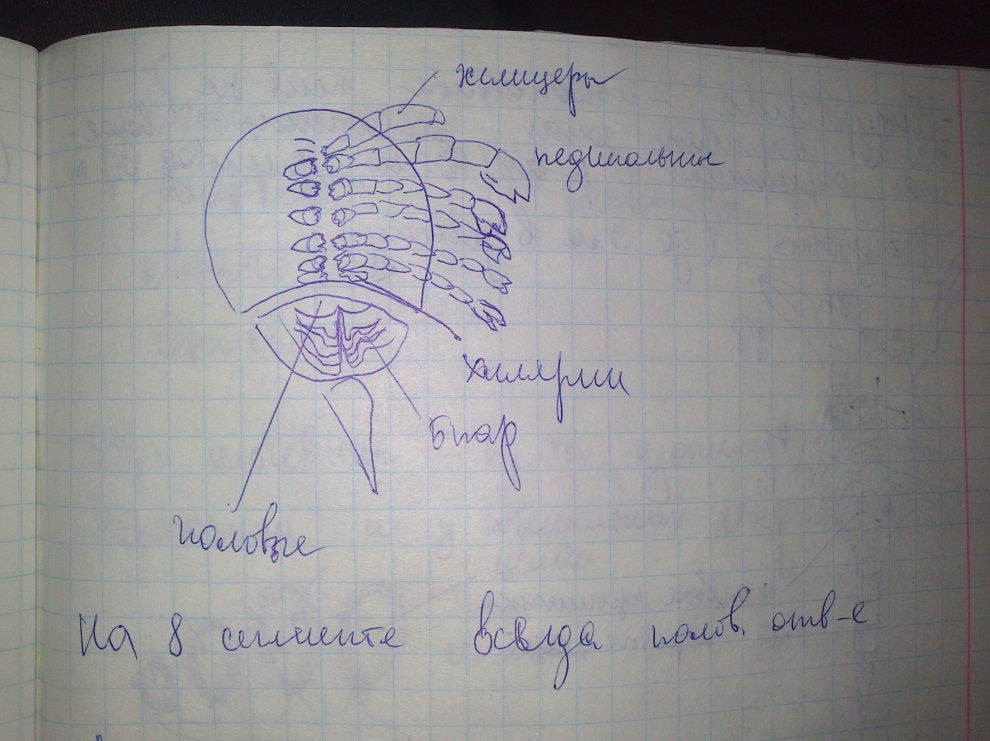 хелицеры
педипальпы
хилярии
биар
половые
На 8 сегменте всегда полов. отв-е